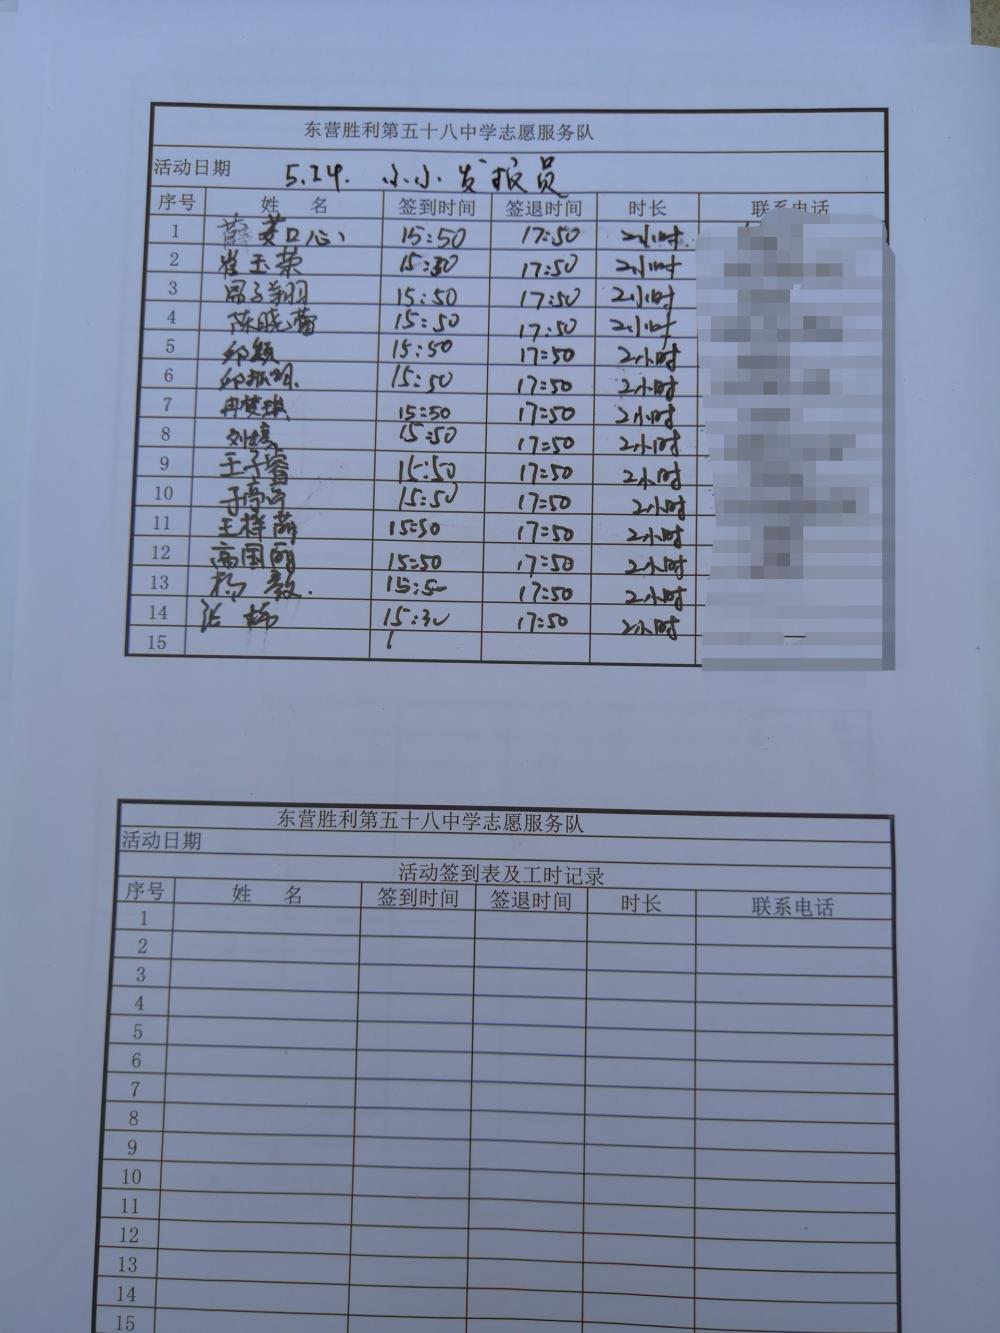 东营胜利第五十八中学志愿服务队
活动日期 5.24. 小小发报员
序号 姓 名 签到时间 签退时间 时长 联系电话
1 15:50 17:50 2小时
2 崔玉荣 15:30 17:50 2小时
3 15:50 17:50 2小时
4 陈晓蕾 15:50 17:50 2小时
5 邱颖 15:50 17:50 2小时
6 15:50 17:50 2小时
7 15:50 17:50 2小时
8 15:50 17:50 2小时
9 王子睿 15:50 17:50 2小时
10 15:50 17:50 2小时
11 15:50 17:50 2小时
12 高国丽 15:50 17:50 2小时
13 15:50 17:50 2小时
14 张 15:30 17:50 2小时
15
东营胜利第五十八中学志愿服务队
活动日期
活动签到表及工时记录
序号 姓 名 签到时间 签退时间 时长 联系电话
1
2
3
4
5
6
7
8
9
10
11
12
13
14
15